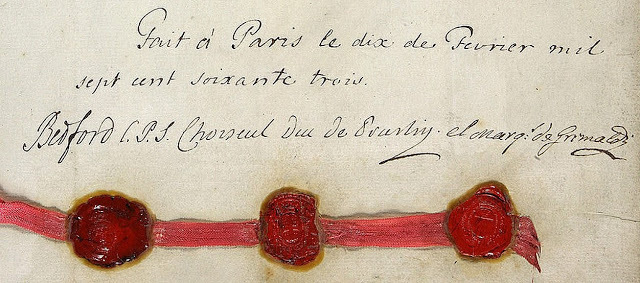 Fait à Paris le dix de Fevrier mil
sept cent soixante trois.
Bedford C.P.S. Choiseul Duc de Praslin. el Marq.s de Grimaldi